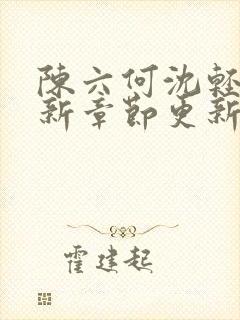 陳六何沈輕
新章節更新
霍建起